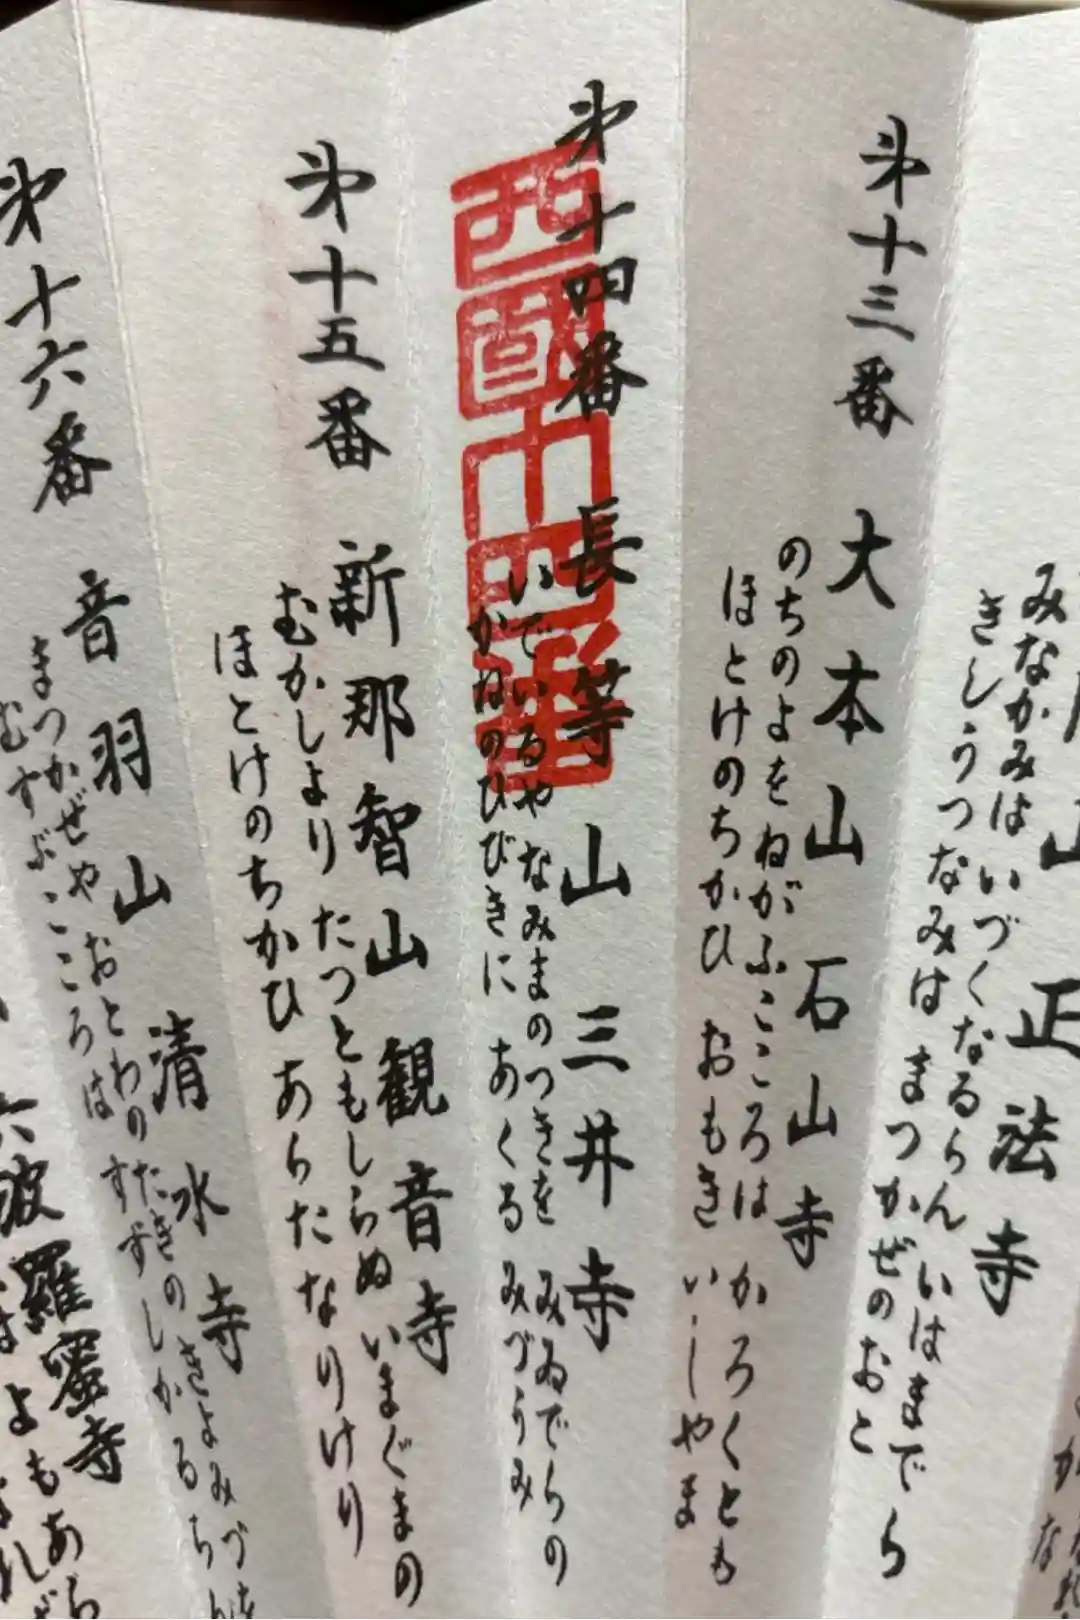 正法寺
みなかみは いづくなるらん いはまでら
きしうつなみは まつかぜのおと
第十三番 大本山 石山寺
のちのよを ねがふこころは かろくとも
ほとけのちかひ おもき いしやま
第十四番 長等山 三井寺
いでいるや なみまのつきを みゐでらの
かねのひびきに あくる みづうみ
西國十四番
第十五番 新那智山 観音寺
むかしより たつともしらぬ いまぐまの
ほとけのちかひ あらたなりけり
第十六番 音羽山 清水寺
まつかぜや おとわのたきの きよみづを
むすぶこころは すずしかるらん
六波羅蜜寺
よもあら